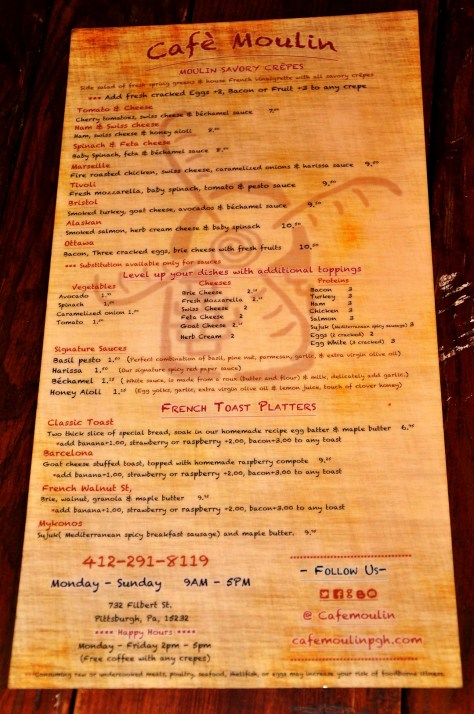 Cafè Moulin
MOULIN SAVORY CRÊPES
Side salad of fresh spring greens & house French vinaigrette with all savory crêpes
*** Add fresh cracked Eggs +2, Bacon or Fruit +3 to any crepe
Tomato & Cheese
Cherry tomatoes, swiss cheese & béchamel sauce
Ham & Swiss cheese
Ham, swiss cheese & honey aioli
Spinach & Feta cheese
Baby Spinach, feta & béchamel sauce
Marseille
Fire roasted chicken, swiss cheese, caramelized onions & harissa sauce 9.
Tivoli
Fresh mozzarella, baby spinach, tomato & pesto sauce 9.
Bristol
Smoked turkey, goat cheese, avocados & béchamel sauce 9.
Alaskan
Smoked salmon, herb cream cheese & baby spinach 10.
Ottawa
Bacon, Three cracked eggs, brie cheese with fresh fruits 10.
*** Substitution available only for sauces
Level up your dishes with additional toppings
Vegetables Cheeses Proteins
Avocado Brie Cheese Bacon 3
Spinach Fresh Mozzarella Turkey 3
Caramelized onion Swiss Cheese 2 Ham 3
Tomato Feta Cheese 2 Chicken 3
Goat Cheese Salmon 3
Herb Cream 2 Sujuk (Mediterranean spicy sausage) 3
Eggs (2 cracked) 2
Egg White (3 cracked) 3
Signature Sauces
Basil pesto (Perfect combination of basil, pine nut, parmesan, garlic, & extra virgin olive oil)
Harissa (Our signature spicy red paper sauce)
Béchamel (White sauce, is made from a roux (butter and flour) & milk, delicately add garlic)
Honey Aioli (Egg yolks, garlic, extra virgin olive oil & lemon juice, touch of clover honey)
FRENCH TOAST PLATTERS
Classic Toast
Two thick slice of special bread, soak in our homemade recipe egg batter & maple butter 6.
*add banana=1.00, strawberry or raspberry +2.00, bacon=3.00 to any toast
Barcelona
Goat cheese stuffed toast, topped with homemade raspberry compote 9.
*add banana=1.00, strawberry or raspberry +2.00, bacon=3.00 to any toast
French Walnut St,
Brie, walnut, granola & maple butter 9.
*add banana=1.00, strawberry or raspberry +2.00, bacon=3.00 to any toast
Mykonos
Sujuk( Mediterranean spicy breakfast sausage) and maple butter. 9.
412-291-8119
Monday - Sunday 9AM - 5PM
732 Filbert St.
Pittsburgh, Pa, 15232
**** Happy Hours ****
Monday - Friday 2pm - 5pm
(Free coffee with any crepes)
- Follow Us-
@ Cafemoulin
cafemoulinpgh.com
Consuming raw or undercooked meats, poultry, seafood, shellfish, or eggs may increase your risk of foodborne illness